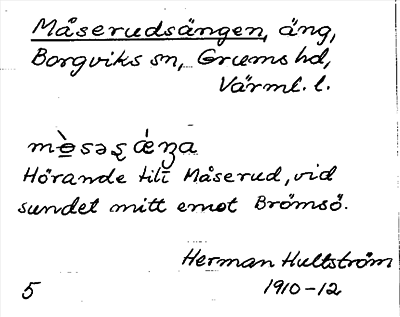 Måserudsängen, äng,
Borgviks sn, Grums hd,
Värml. l.
Hörande till Måserud, vid
sundet mitt emot Brömsö.
Herman Hultström
5 1910-12